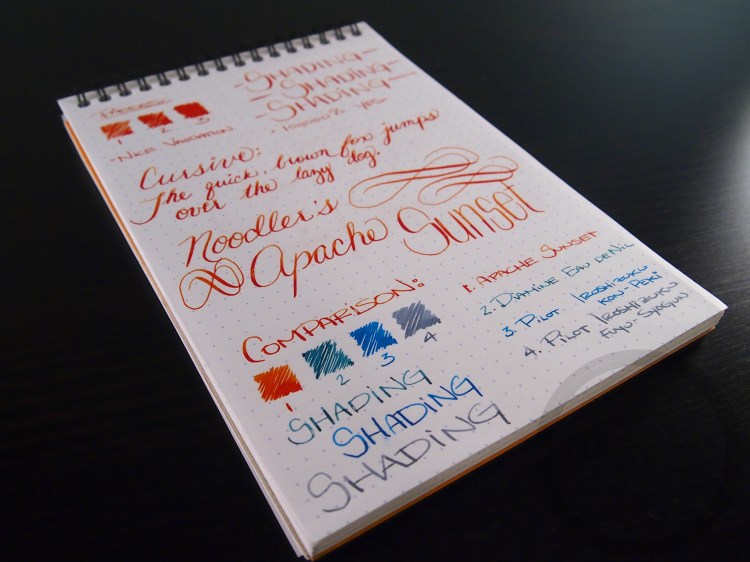 SHADING
SHADING
SHADING
1 2 3
- NICE VARIATION
YES
Cursive:
The quick, brown fox jumps
over the lazy dog.
Noodler's
Apache Sunset
COMPARISON:
1 2 3 4
1. APACHE SUNSET
2. DIAMINE EAU DE NIL
3. PILOT IROSHIZUKU
KON-PEKI
4. PILOT IROSHIZUKU
FUYU-SYOGUN
SHADING
SHADING
SHADING